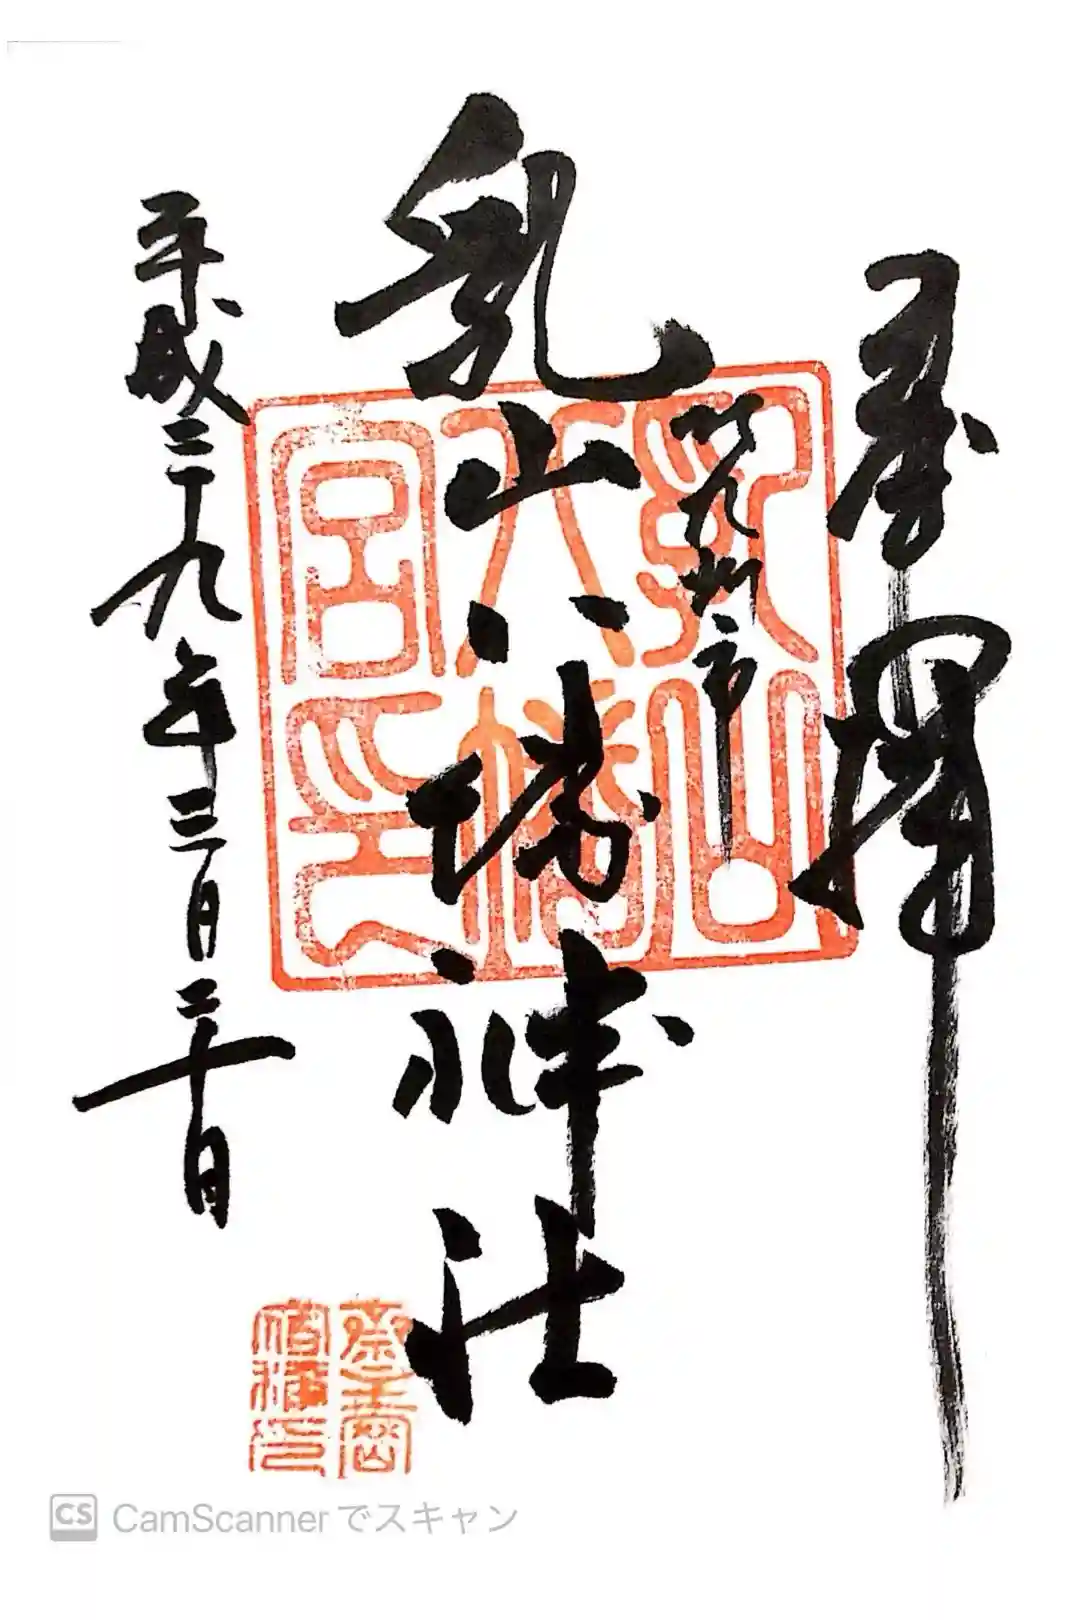 奉拝
乳山八幡神社
乳山
八幡
宮印
平成二十九年三月二十日
CS CamScannerでスキャン